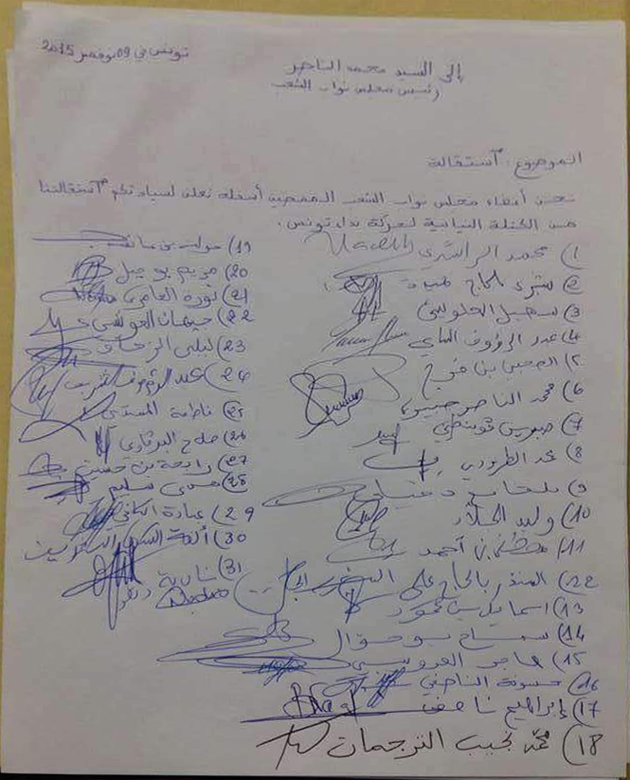 تونس في 09 نوفمبر 2015
إلى السيد محمد الناصر
رئيس مجلس نواب الشعب
الموضوع: استقالة
نحن أعضاء مجلس نواب الشعب الممضين أسفله نعلن لسيادتكم استقالتنا
من الكتلة النيابية لحركة نداء تونس.
1) محمد الراشدي
2) بشرى بلحاج حميدة
3) سهيل العلويني
4) عبد الرؤوف الماي
محسن بن فتوح
6) محمد الناصر جبيرة
7) صبرين
8) محمد الطرودي
9)
10) وليد الجلاد
11) مصطفى بن أحمد
12) المنذر بالحاج علي
13) اسماعيل بن محمود
14) سماح بوحوال
15) هاجر العروسي
16) حسونة الناصفي
17) إبراهيم ناصف
18) محمد نجيب الترجمان
19)
20) مريم بوجبل
21) نورة العامري
22) جيهان العويشي
23) ليلى الزحاف
24) عبد الرؤوف الشريف
25) فاطمة المسدي
26) صلاح البرقاوي
27) رابحة بن حسين
28) هدى سليم
29) عبادة الكافي
30) ألفة السكري
31) نادية